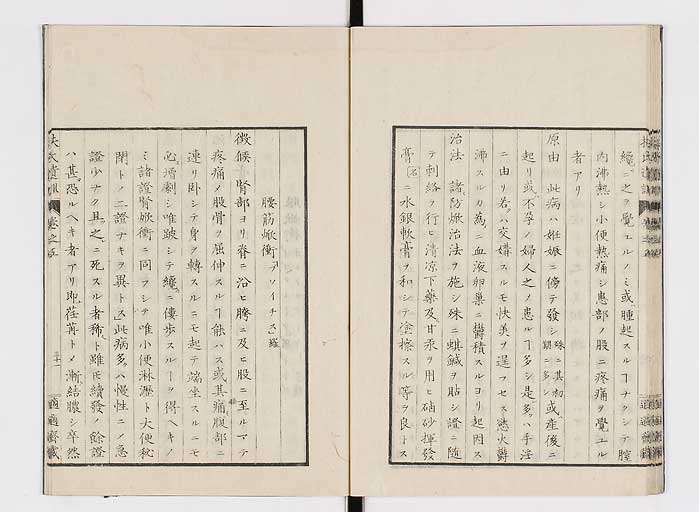 纔ニ之ヲ覺エルノミ或ハ腫起スルヿナクシテ膣
内沸熱シ小便熱痛シ患部ノ股ニ疼痛ヲ覺エル
者アリ
原由 此病ハ妊娠ニ傍テ發シ殊ニ其初期ニ多シ或ハ産後ニ
起リ或ハ不孕ノ婦人之ヲ患ルヿ多シ是多クハ手淫
ニ由リ若クハ交媾スルモ快美ヲ逞フセス慾火鬱
沸スルカ為ニ血液卵巣ニ鬱積スルヨリ起因ス
治法 諸防焮治法ヲ施シ殊ニ蜞鍼ヲ貼シ證ニ随
テ刺絡ヲ行ヒ清凉下藥及甘汞ヲ用ヒ硇砂揮發
膏ニ水銀軟膏ヲ和シテ塗擦スル等ヲ良トス
腰筋焮衝 「プソイチス」羅
徴候 腎部ヨリ脊ニ沿ヒ臍ニ及ヒ股ニ至ルマテ
疼痛メ股骨ヲ屈伸スルヿ能ハス或其痛腹部ニ
連リ卧シテ身ヲ轉スルニモ起テ端坐スルニモ
必増劇シ唯跛シテ纔ニ僂歩スルヿヲ得ヘキノ
ミ諸證腎焮衝ニ同フシテ唯小便淋瀝ト大便秘
閉トノ二證ナキヲ異トス」此病多クハ慢性ニメ急
證少ナク且之ニ死スル者稀ト雖𪜈續發ノ餘證
ハ甚恐ルヘキ者アリ即荏苒トメ漸結膿シ卒然
扶氏遺訓 卷之五
適適齋藏